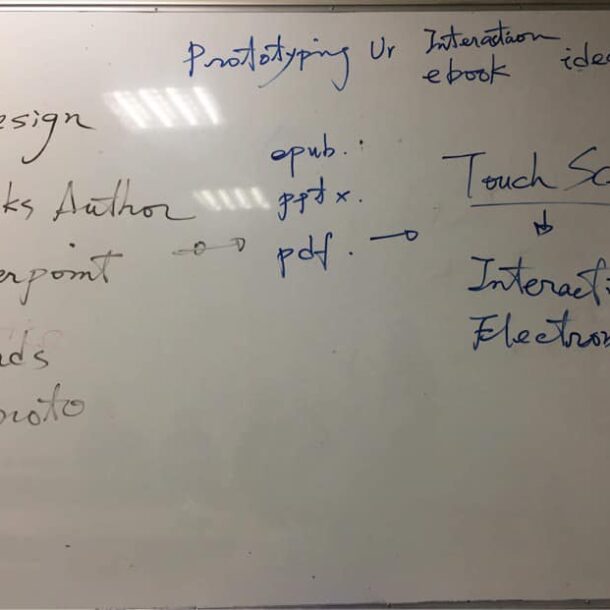 Prototyping Ur Interactaon ebook ide
esign
ks Author
erpoint
ds
proto
epub.
pptx.
pdf.
Touch Sc
Interacti
Electron